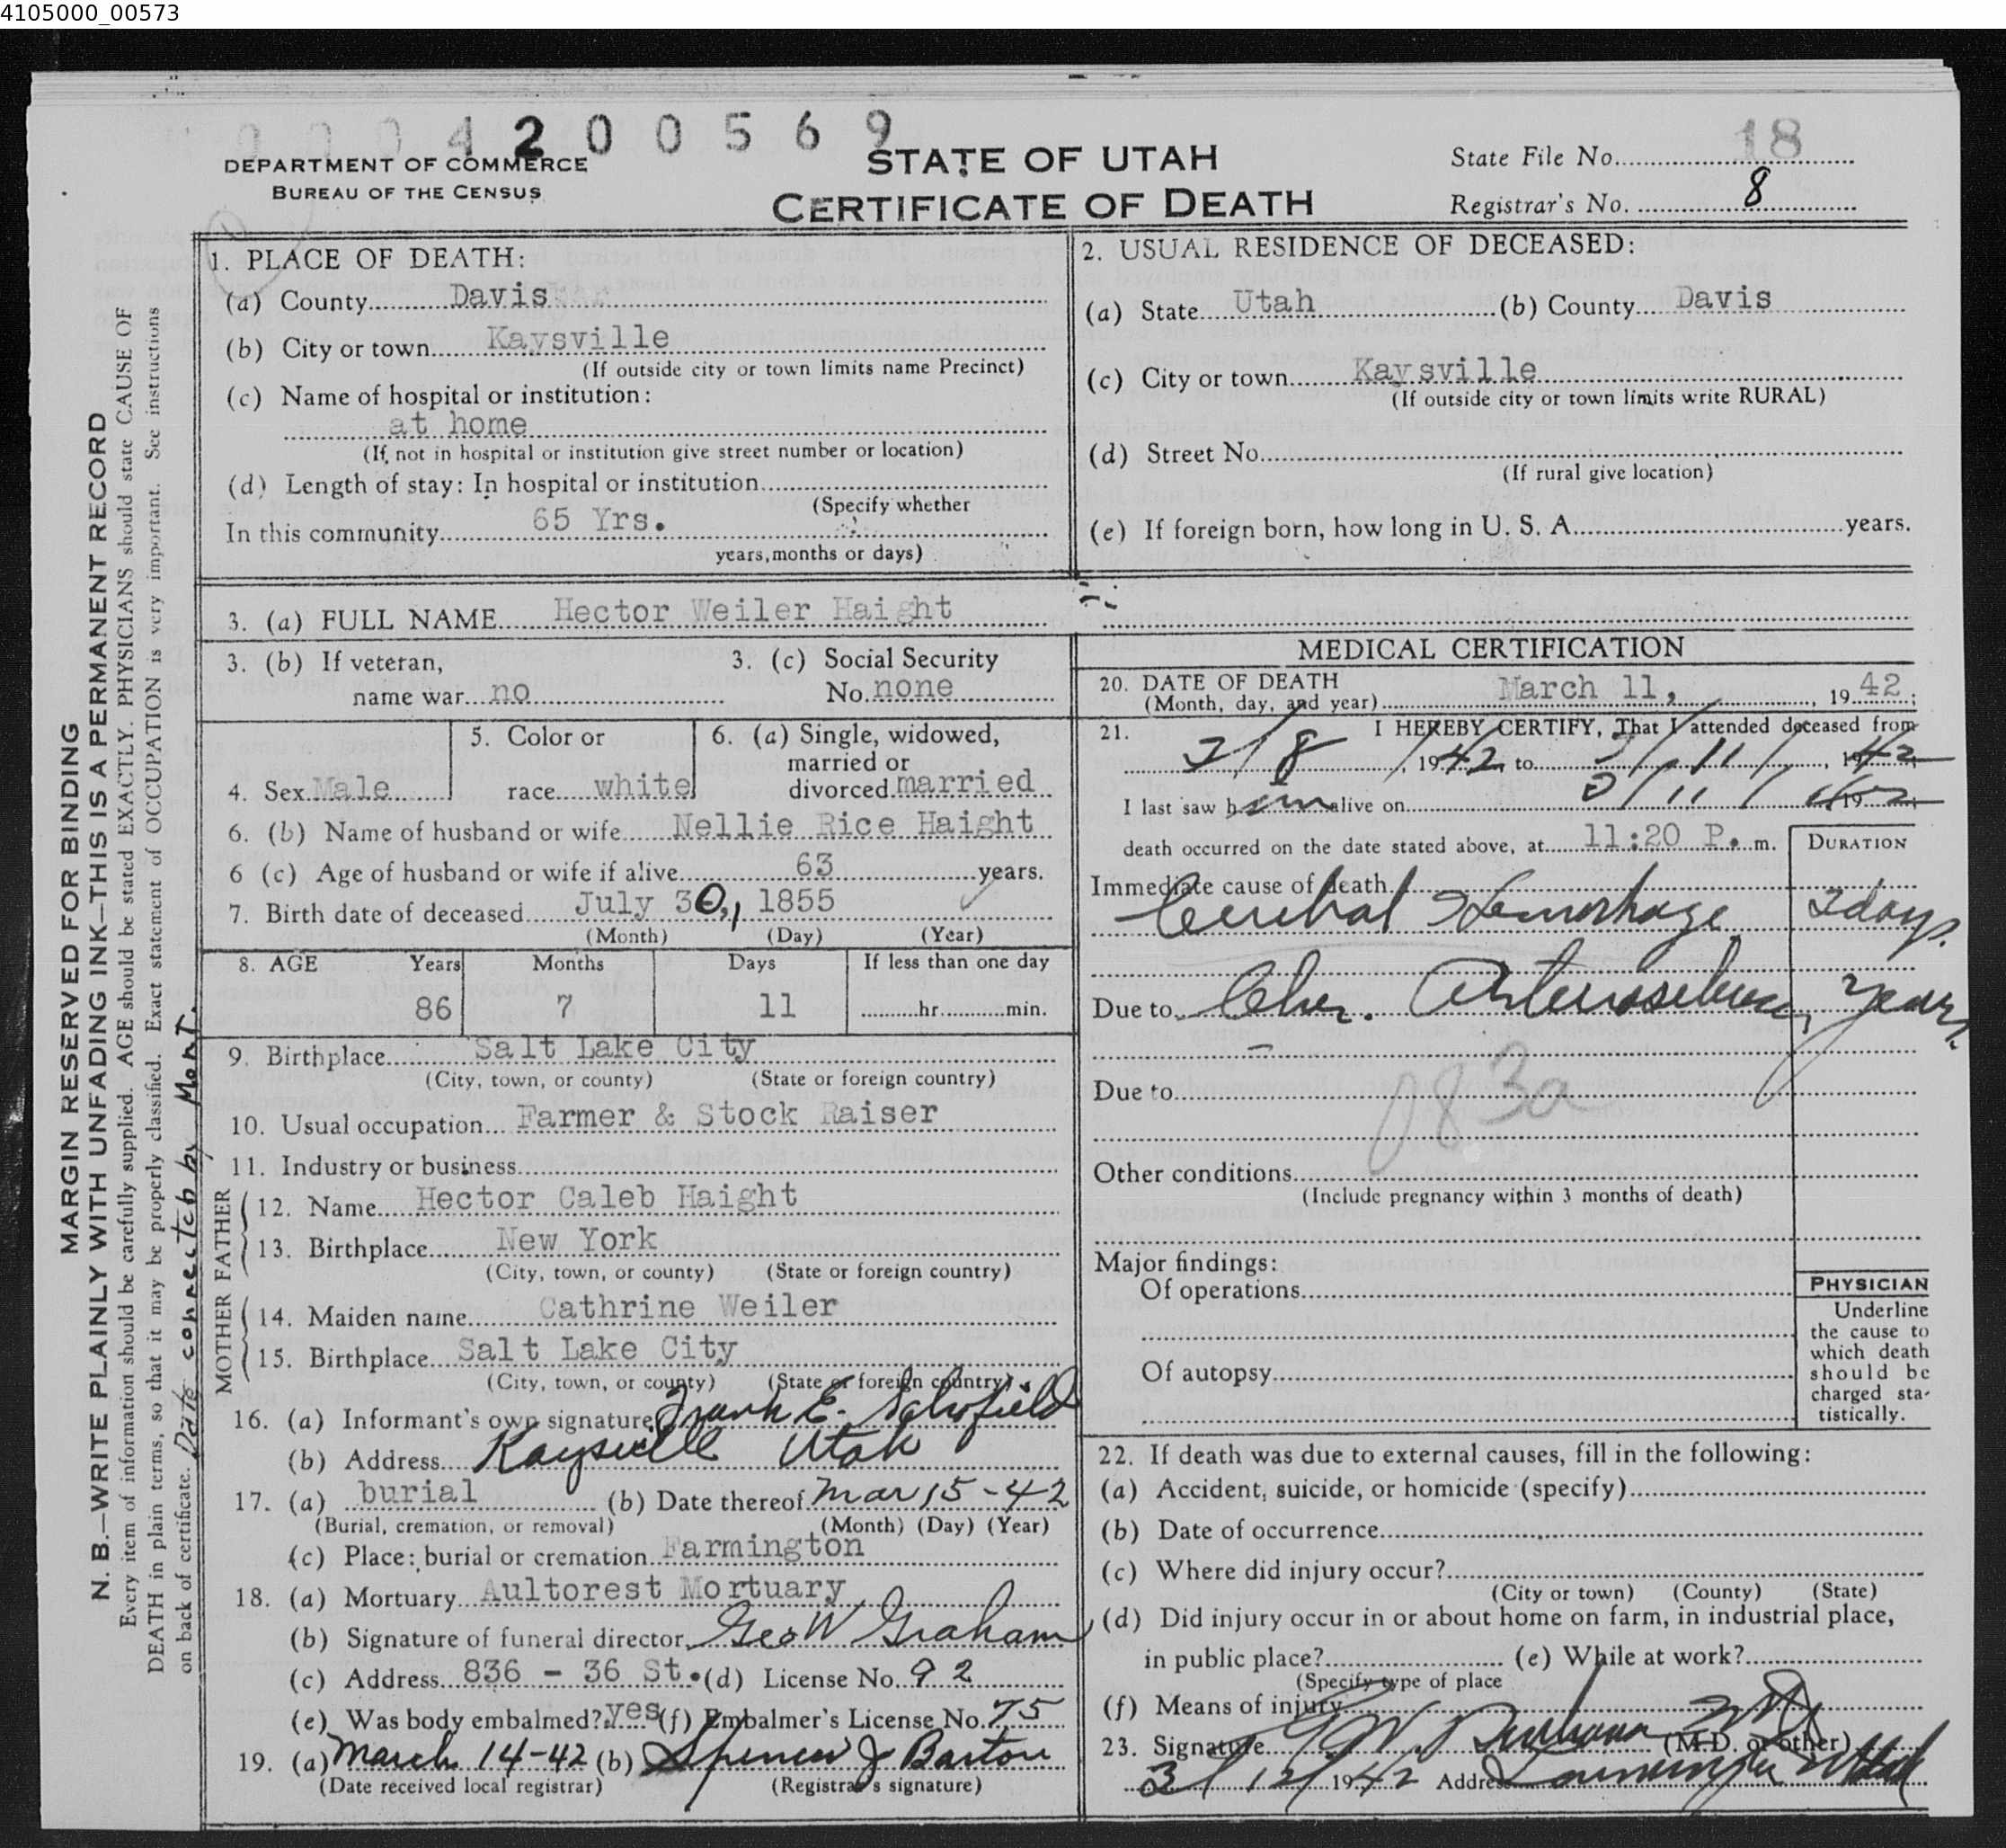 4105000_00573
0004200569
DEPARTMENT OF COMMERCE
BUREAU OF THE CENSUS
STATE OF UTAH
CERTIFICATE OF DEATH
State File No. 18
Registrar's No. 8
MARGIN RESERVED FOR BINDING
N. B.—WRITE PLAINLY WITH UNFADING INK—THIS IS A PERMANENT RECORD
Every item of information should be carefully supplied. AGE should be stated EXACTLY. PHYSICIANS should state CAUSE OF
DEATH in plain terms, so that it may be properly classified. Exact statement of OCCUPATION is very important. See instructions
on back of certificate. Date corrected by Mort.
1. PLACE OF DEATH:
(a) County Davis
(b) City or town Kaysville
(If outside city or town limits name Precinct)
(c) Name of hospital or institution:
at home
(If not in hospital or institution give street number or location)
(d) Length of stay: In hospital or institution
(Specify whether
In this community 65 Yrs.
years, months or days)
2. USUAL RESIDENCE OF DECEASED:
(a) State Utah (b) County Davis
(c) City or town Kaysville
(If outside city or town limits write RURAL)
(d) Street No.
(If rural give location)
(e) If foreign born, how long in U. S. A. years.
3. (a) FULL NAME Hector Weiler Haight
3. (b) If veteran, 3. (c) Social Security
name war no No. none
5. Color or 6. (a) Single, widowed,
married or
4. Sex Male race white divorced married
6. (b) Name of husband or wife Nellie Rice Haight
6 (c) Age of husband or wife if alive 63 years.
7. Birth date of deceased July 30, 1855
(Month) (Day) (Year)
8. AGE Years Months Days If less than one day
86 7 11 hr. min.
9. Birthplace Salt Lake City
(City, town, or county) (State or foreign country)
10. Usual occupation Farmer & Stock Raiser
11. Industry or business
FATHER
12. Name Hector Caleb Haight
13. Birthplace New York
(City, town, or county) (State or foreign country)
MOTHER
14. Maiden name Cathrine Weiler
15. Birthplace Salt Lake City
(City, town, or county) (State or foreign country)
16. (a) Informant's own signature Frank E. Schofield
(b) Address Kaysville Utah
17. (a) burial (b) Date thereof Mar 15-42
(Burial, cremation, or removal) (Month) (Day) (Year)
(c) Place: burial or cremation Farmington
18. (a) Mortuary Aultorest Mortuary
(b) Signature of funeral director Geo W Graham
(c) Address 836 - 36 St. (d) License No. 92
(e) Was body embalmed? yes (f) Embalmer's License No. 75
19. (a) March 14-42 (b) Spencer J Barton
(Date received local registrar) (Registrar's signature)
MEDICAL CERTIFICATION
20. DATE OF DEATH
(Month, day, and year) March 11, 1942;
21. I HEREBY CERTIFY, That I attended deceased from
3/8/, 1942, to 3/11/, 1942;
I last saw him alive on 3/11/ 1942;
death occurred on the date stated above, at 11:20 P. m.
DURATION
Immediate cause of death
Cerebral Hemorhage 3 days.
Due to Chr. Arteriosclerosis, years.
Due to
083a
Other conditions
(Include pregnancy within 3 months of death)
Major findings:
Of operations
Of autopsy
PHYSICIAN
Underline
the cause to
which death
should be
charged sta-
tistically.
22. If death was due to external causes, fill in the following:
(a) Accident, suicide, or homicide (specify)
(b) Date of occurrence
(c) Where did injury occur?
(City or town) (County) (State)
(d) Did injury occur in or about home on farm, in industrial place,
in public place? (e) While at work?
(Specify type of place
(f) Means of injury
23. Signature (M.D. or other)
3/12/ 1942 Address Utah